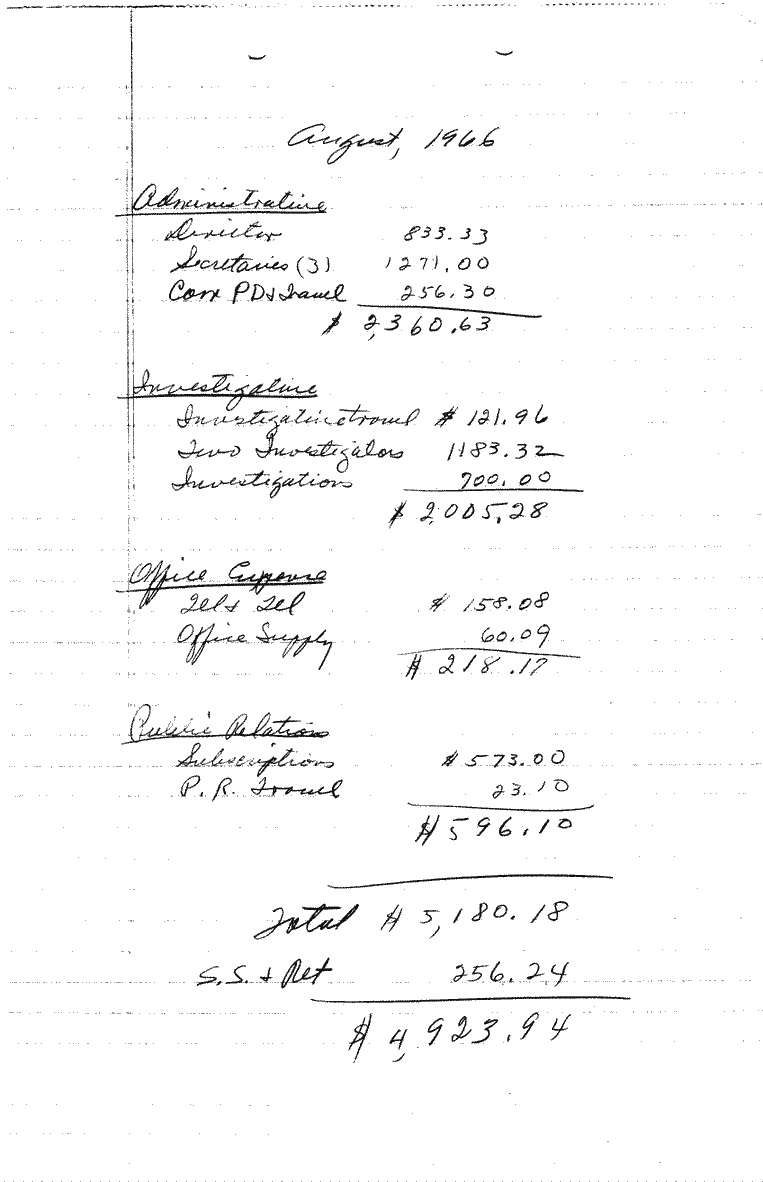 August, 1966
Administrative
Director 833.33
Secretaries (3) 1271.00
Com PD & Travel 256.30
$ 2,360.63
Investigative
Investigative travel $ 121.96
Two Investigators 1183.32
Investigations 700.00
$ 2,005.28
Office Expense
Tel & Tel $ 158.08
Office Supply 60.09
$ 218.17
Public Relations
Subscriptions $ 573.00
P. R. Travel 23.10
$ 596.10
Total $ 5,180.18
S.S. & Ret 256.24
$ 4,923.94